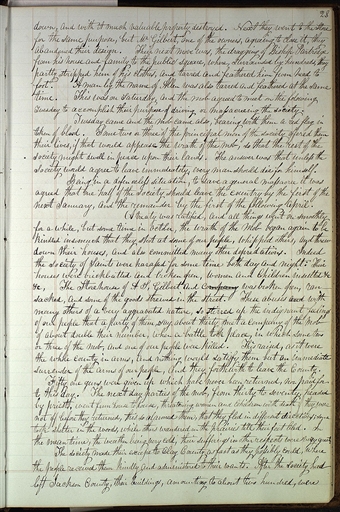 23
down, and with it much valuable property destroyed. Next they went to the Store
for the same purpose, but Mr Gilbert, one of the owners, agreeing to close it, they
abandoned their design. Their next move was, the dragging of Bishop Partridge
from his house and family to the public square, when, surrounded by hundreds they
partly stripped him of his clothes, and tarred and feathered him from head to
foot. A man by the name of Allen was also tarred and feathered at the same
time. This was on Saturday, and the mob agreed to meet on the following
Tuesday to accomplish their purpose of driving or massacreing the society.
Tuesday came and the mob came also, bearing with them a red flag in
token of blood. Some two or three of the principal men of the society offered them
their lives, if that would appease the wrath of the mob, so that the rest of the
society might dwell in peace upon their lands. The answer was that unless the
society would agree to leave immediately, every man should die for himself.
Being in a defenceless situation, to save a general massacre, it was
agreed that one half of the society should leave the country by the first of the
next January, and the remainder by the first of the following
A treaty was ratified, and all things went on smoothly
for a while, but some time in October, the wrath of the mob began again to be
kindled insomuch that they shot at some of our people, whipped others, and threw
down their houses, and also committed many other depredations. Indeed
the society of Saints were harassed for some time both day and night. Their
houses were brickbatted and broken open, women and children insulted &c
&c. The Storehouse of A. S. Gilbert and company was broken open, ran-
sacked, and some of the goods strewed in the street. These abuses with
many others of a very aggravated nature, so stirred up the indignant feelings
of our people that a party of them, say about thirty, met a company of the mob
of about double their number, when a battle took place, in which some two
or three of the mob, and one of our people were killed. This raised, as it were
the whole county in arms, and nothing would satisfy them but an immediate
surrender of the arms of our people, and they forthwith to leave the County.
Fifty one guns were given up which have never been returned, nor paid for
to this day. The next day parties of the mob, from thirty to seventy, headed
by priests, went from house to house, threatning women and children with death if they were
not off before they returned, this so alarmed them, that they fled in different directions; some
took shelter in the woods, while others wandered in the prairies till their feet bled. In
the mean time, the weather being very cold, their sufferings in other respects were very great.
The society made their escape to Clay County as fast as they possibly could, where
the people received them kindly and administered to their wants. After the society had
left Jackson County, their buildings, amounting to about two hundred, were